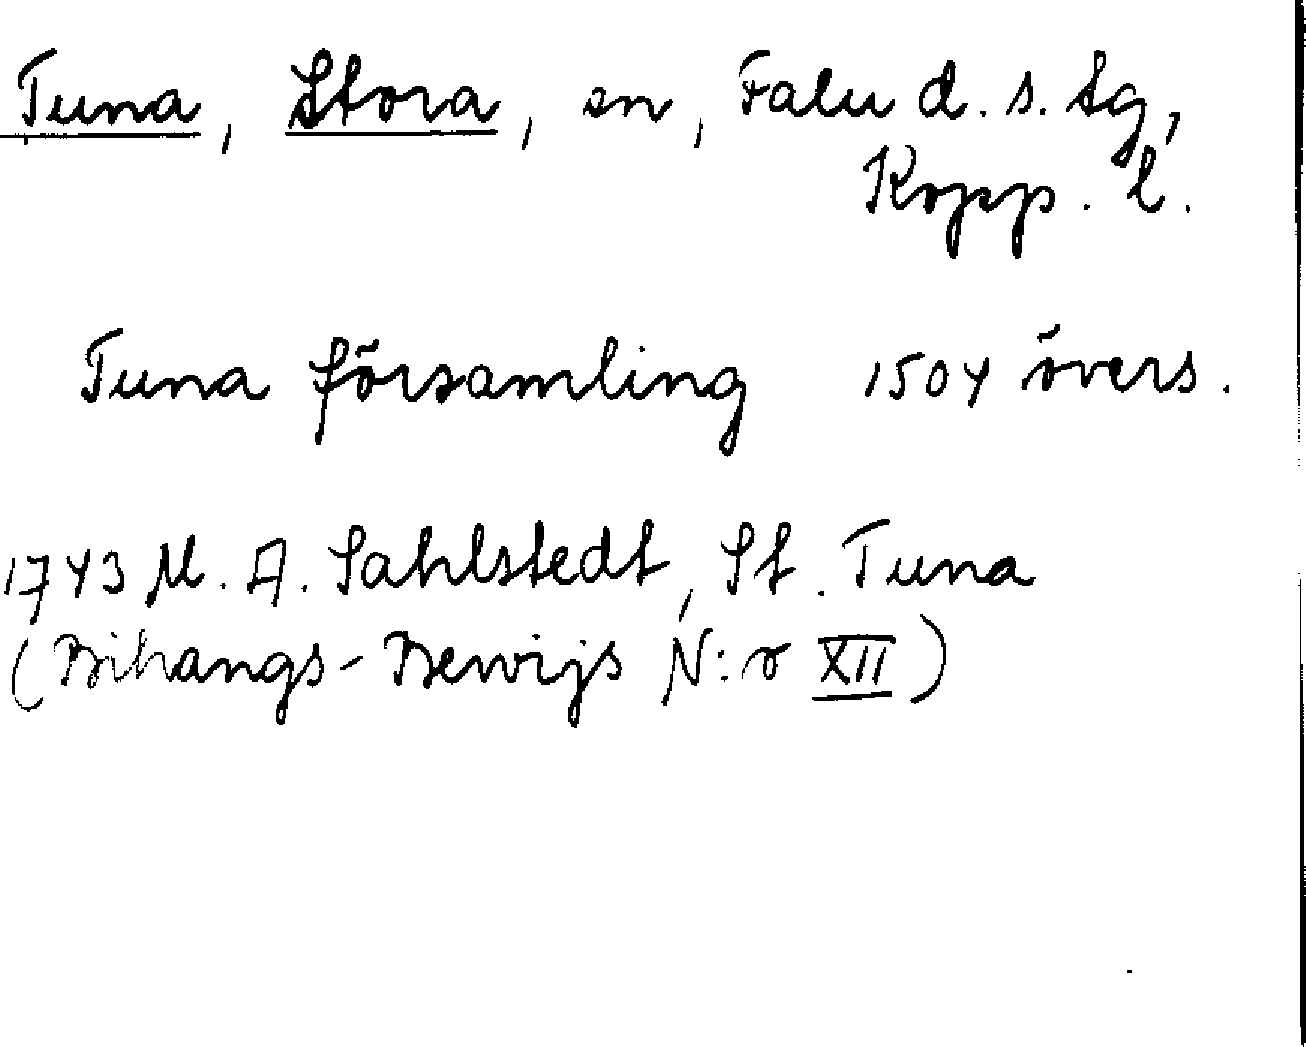 Tuna, Stora, sn, Falu d. s. tg,
Kopp. l.
Tuna församling 1504 övers.
1743 M. A. Sahlstedt, St. Tuna
(Bihangs-Bewijs N:o XII)